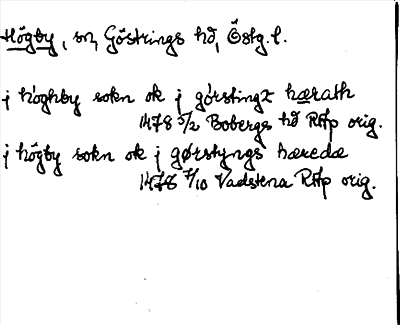 Högby, sn, Göstrings hd, Östg.l.
j höghby sokn ok j görstingx hærath
1478 5/2 Bobergs hd RAp orig.
j högby sokn ok j gørstyngs hæredæ
1478 7/10 Vadstena RAp orig.